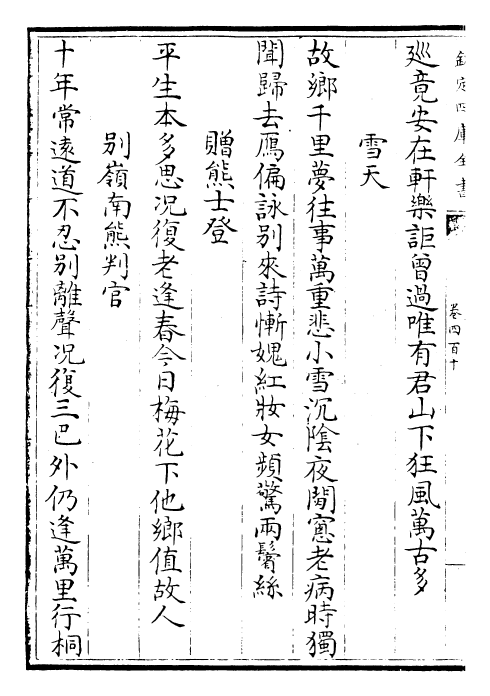 欽定四庫全書
卷四百十
廵竟安在軒樂詎曾過唯有君山下狂風萬古多
雪天
故鄉千里夢往事萬重悲小雪沉陰夜閒窻老病時獨
聞歸去鴈偏詠別來詩慚媿紅妝女頻驚兩鬢絲
贈熊士登
平生本多思况復老逢春今日梅花下他鄉值故人
別嶺南熊判官
十年常逺道不忍別離聲况復三巴外仍逢萬里行桐